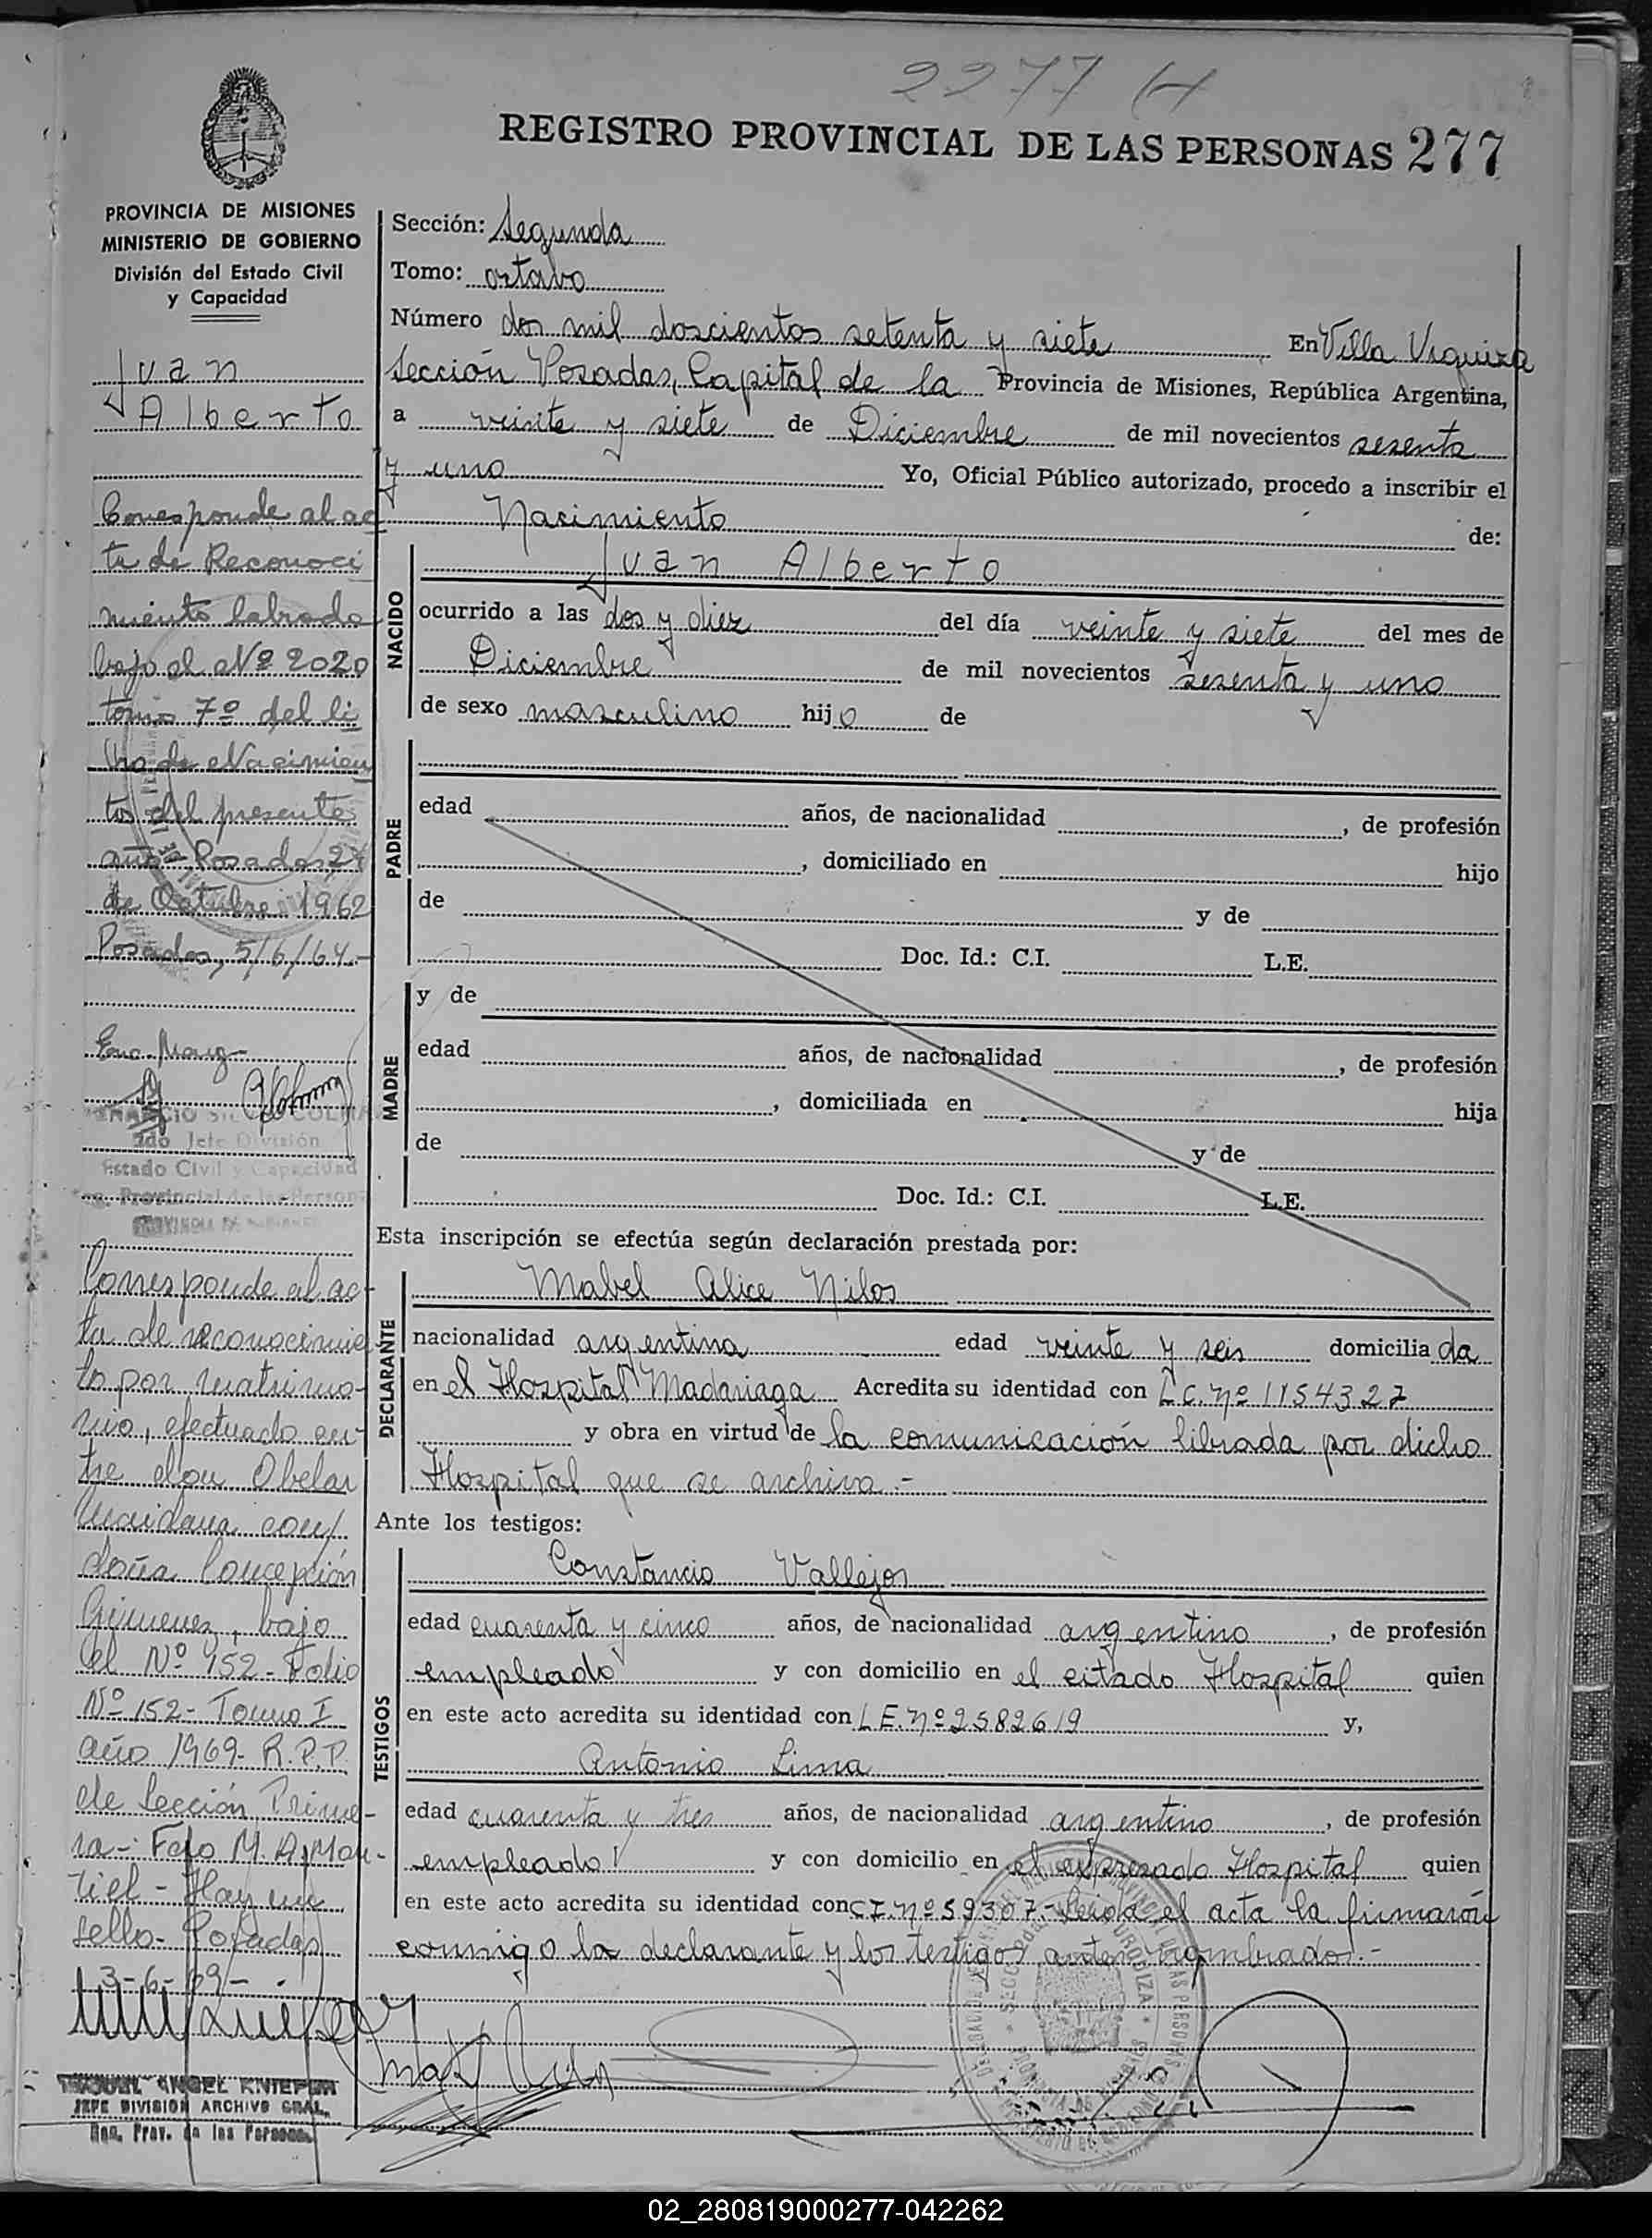 2277 H
REGISTRO PROVINCIAL DE LAS PERSONAS 277
PROVINCIA DE MISIONES
MINISTERIO DE GOBIERNO
División del Estado Civil
y Capacidad
Juan
Alberto
Corresponde al ac
ta de Reconoci
miento labrado
bajo el Nº 2020
tomo 7º del li
bro de Nacimien
tos del presente
año Posadas 24
de Octubre 1962
Posadas, 5/6/64.-
2do Jefe División
Estado Civil y Capacidad
Reg. Provincial de las Personas
PROVINCIA DE MISIONES
Corresponde al ac-
ta de reconocimie
to por matrimo-
nio, efectuado en-
tre don Obelar
Maidana con
doña Concepción
Gimenez, bajo
el Nº 152- Folio
Nº 152- Tomo I
año 1969- R.P.P.
de Sección Prime-
ra- Fdo M. A. Mon-
tiel - Hay un
sello- Posadas
3-6-69-
MIGUEL ANGEL KNIEPER
JEFE DIVISION ARCHIVO GRAL.
Reg. Prov. de las Personas
Sección: Segunda
Tomo: octavo
Número dos mil doscientos setenta y siete En Villa Urquiza
Sección Posadas, Capital de la Provincia de Misiones, República Argentina,
a veinte y siete de Diciembre de mil novecientos sesenta
y uno Yo, Oficial Público autorizado, procedo a inscribir el
Nacimiento de:
NACIDO
Juan Alberto
ocurrido a las dos y diez del día veinte y siete del mes de
Diciembre de mil novecientos sesenta y uno
de sexo masculino hijo de
PADRE
edad años, de nacionalidad , de profesión
, domiciliado en hijo
de y de
Doc. Id.: C.I. L.E.
MADRE
y de
edad años, de nacionalidad , de profesión
, domiciliada en hija
de y de
Doc. Id.: C.I. L.E.
Esta inscripción se efectúa según declaración prestada por:
DECLARANTE
Mabel Alice Nilos
nacionalidad argentina edad veinte y seis domiciliada
en el Hospital Madariaga Acredita su identidad con L.C. nº 1154327
y obra en virtud de la comunicación librada por dicho
Hospital que se archiva.-
Ante los testigos:
TESTIGOS
Constancio Vallejos
edad cuarenta y cinco años, de nacionalidad argentino, de profesión
empleado y con domicilio en el citado Hospital quien
en este acto acredita su identidad con L.E. nº 2582619 y,
Antonio Lima
edad cuarenta y tres años, de nacionalidad argentino, de profesión
empleado y con domicilio en el expresado Hospital quien
en este acto acredita su identidad con C.I. nº 59307.- Leida el acta la firmarón
conmigo la declarante y los testigos antes nombrados.-
02_280819000277-042262